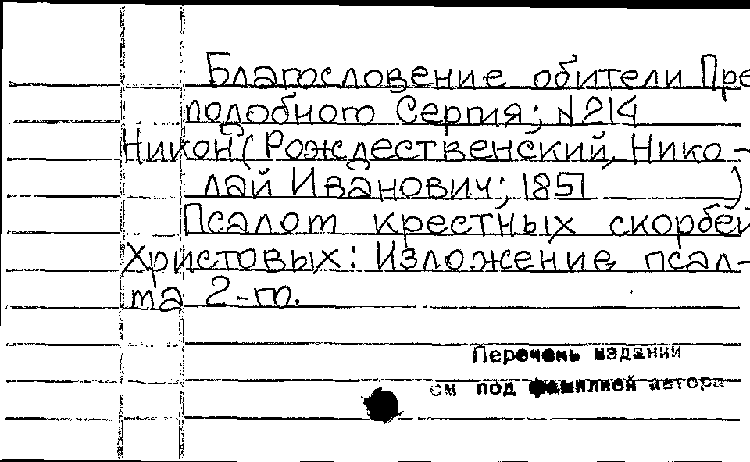 Благословение обители Пре
подобного Сергия; N 214
Никон (Рождественский, Нико-
лай Иванович; 1851 )
Псалом крестных скорбей
Христовых: Изложение псал-
ма 2-го.
Перечень изданий
см под фамилией автора